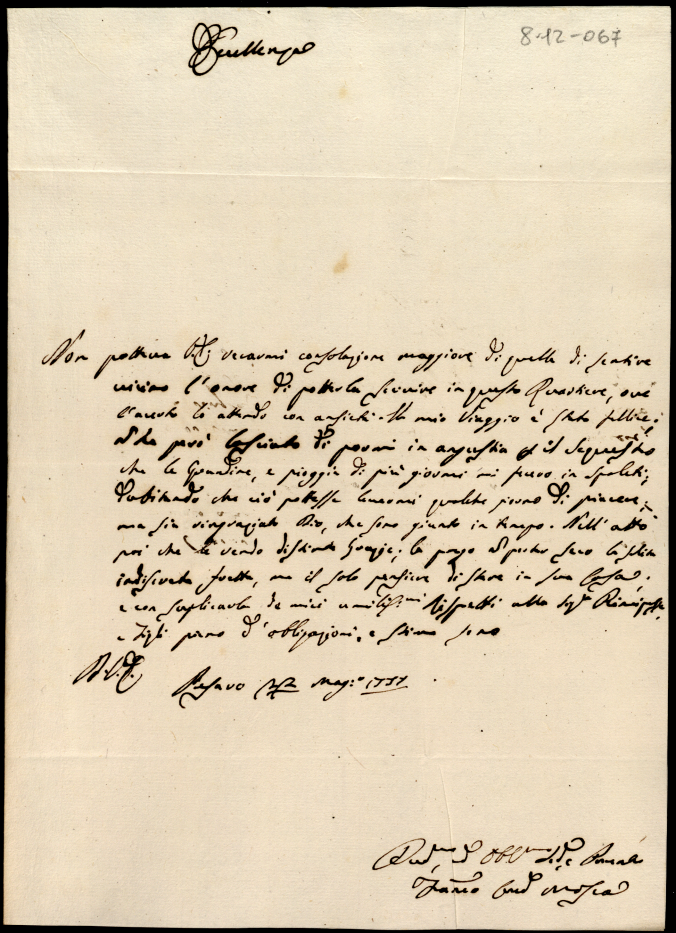 Eccellenza
8-12-067
Non potteva V.E. recarmi consolazione maggiore di quella di sentire
vicino l'onore di potterla servire in questo Quartiere, ove
l'accerto la attendo con ansietà. Il mio Viaggio è stato fellice,
però lasciato di pormi in angustia il Sequestro
che la Grandine, e pioggia di più giorni mi fecero in Spoleti,
dubitando che ciò potesse levarmi qualche giorno di piacere,
ma sia ringraziato Dio, che sono giunto in tempo. Nell'atto
poi che le rendo distinte Grazie, la prego
indiscreta fretta, ma il solo pensiere di stare in sua Casa.
e con suplicarla de miei umilissimi rispetti alla Sig.ra Principessa,
e Figli pieno d'obligazioni, e stima sono
D.V.E.
Pesaro 22 Mag.o 1737
Obb.mo
Franco Mosca